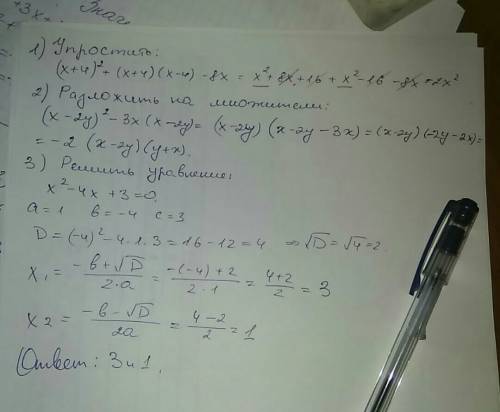 +3x+
1) Упростить:
(x+4)²+(x+4)(x-4)-8x = x²+8x+16+x²-16-8x=2x²
2) Разложить на множители:
(x-2y)²-3x(x-2y)= (x-2y)(x-2y-3x)=(x-2y)(-2y-2x)=
=-2(x-2y)(y+x).
3) Решить уравнение:
x²-4x+3=0.
a=1 b=-4 c=3
D=(-4)²-4·1·3=16-12=4 ⇒√D=√4=2.
x₁ = (-b+√D)/(2·a) = (-(-4)+2)/(2·1) = (4+2)/2 = 3
x₂ = (-b-√D)/(2a) = (4-2)/2 = 1
Ответ: 3 и 1.